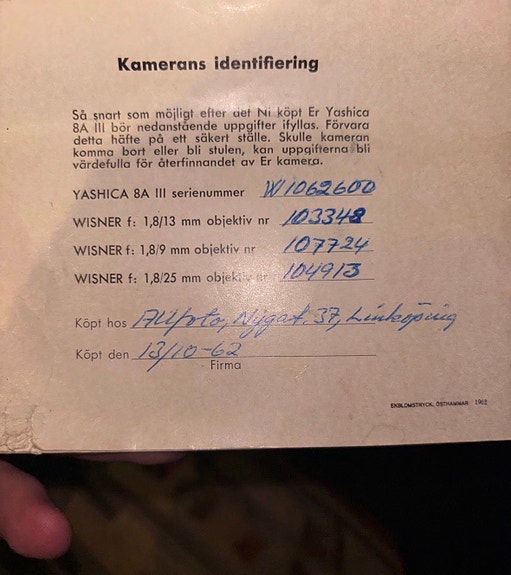 Kamerans identifiering
Så snart som möjligt efter det Ni köpt Er Yashica
8A III bör nedanstående uppgifter ifyllas. Förvara
detta häfte på ett säkert ställe. Skulle kameran
komma bort eller bli stulen, kan uppgifterna bli
värdefulla för återfinnandet av Er kamera.
YASHICA 8A III serienummer W1062600
WISNER f: 1,8/13 mm objektiv nr 103348
WISNER f: 1,8/9 mm objektiv nr 107724
WISNER f: 1,8/25 mm objektiv nr 104913
Köpt hos Allfoto, Nygat. 37, Linköping
Köpt den 13/10-62
Firma
EKBLOMSTRYCK, ÖSTHAMMAR 1962